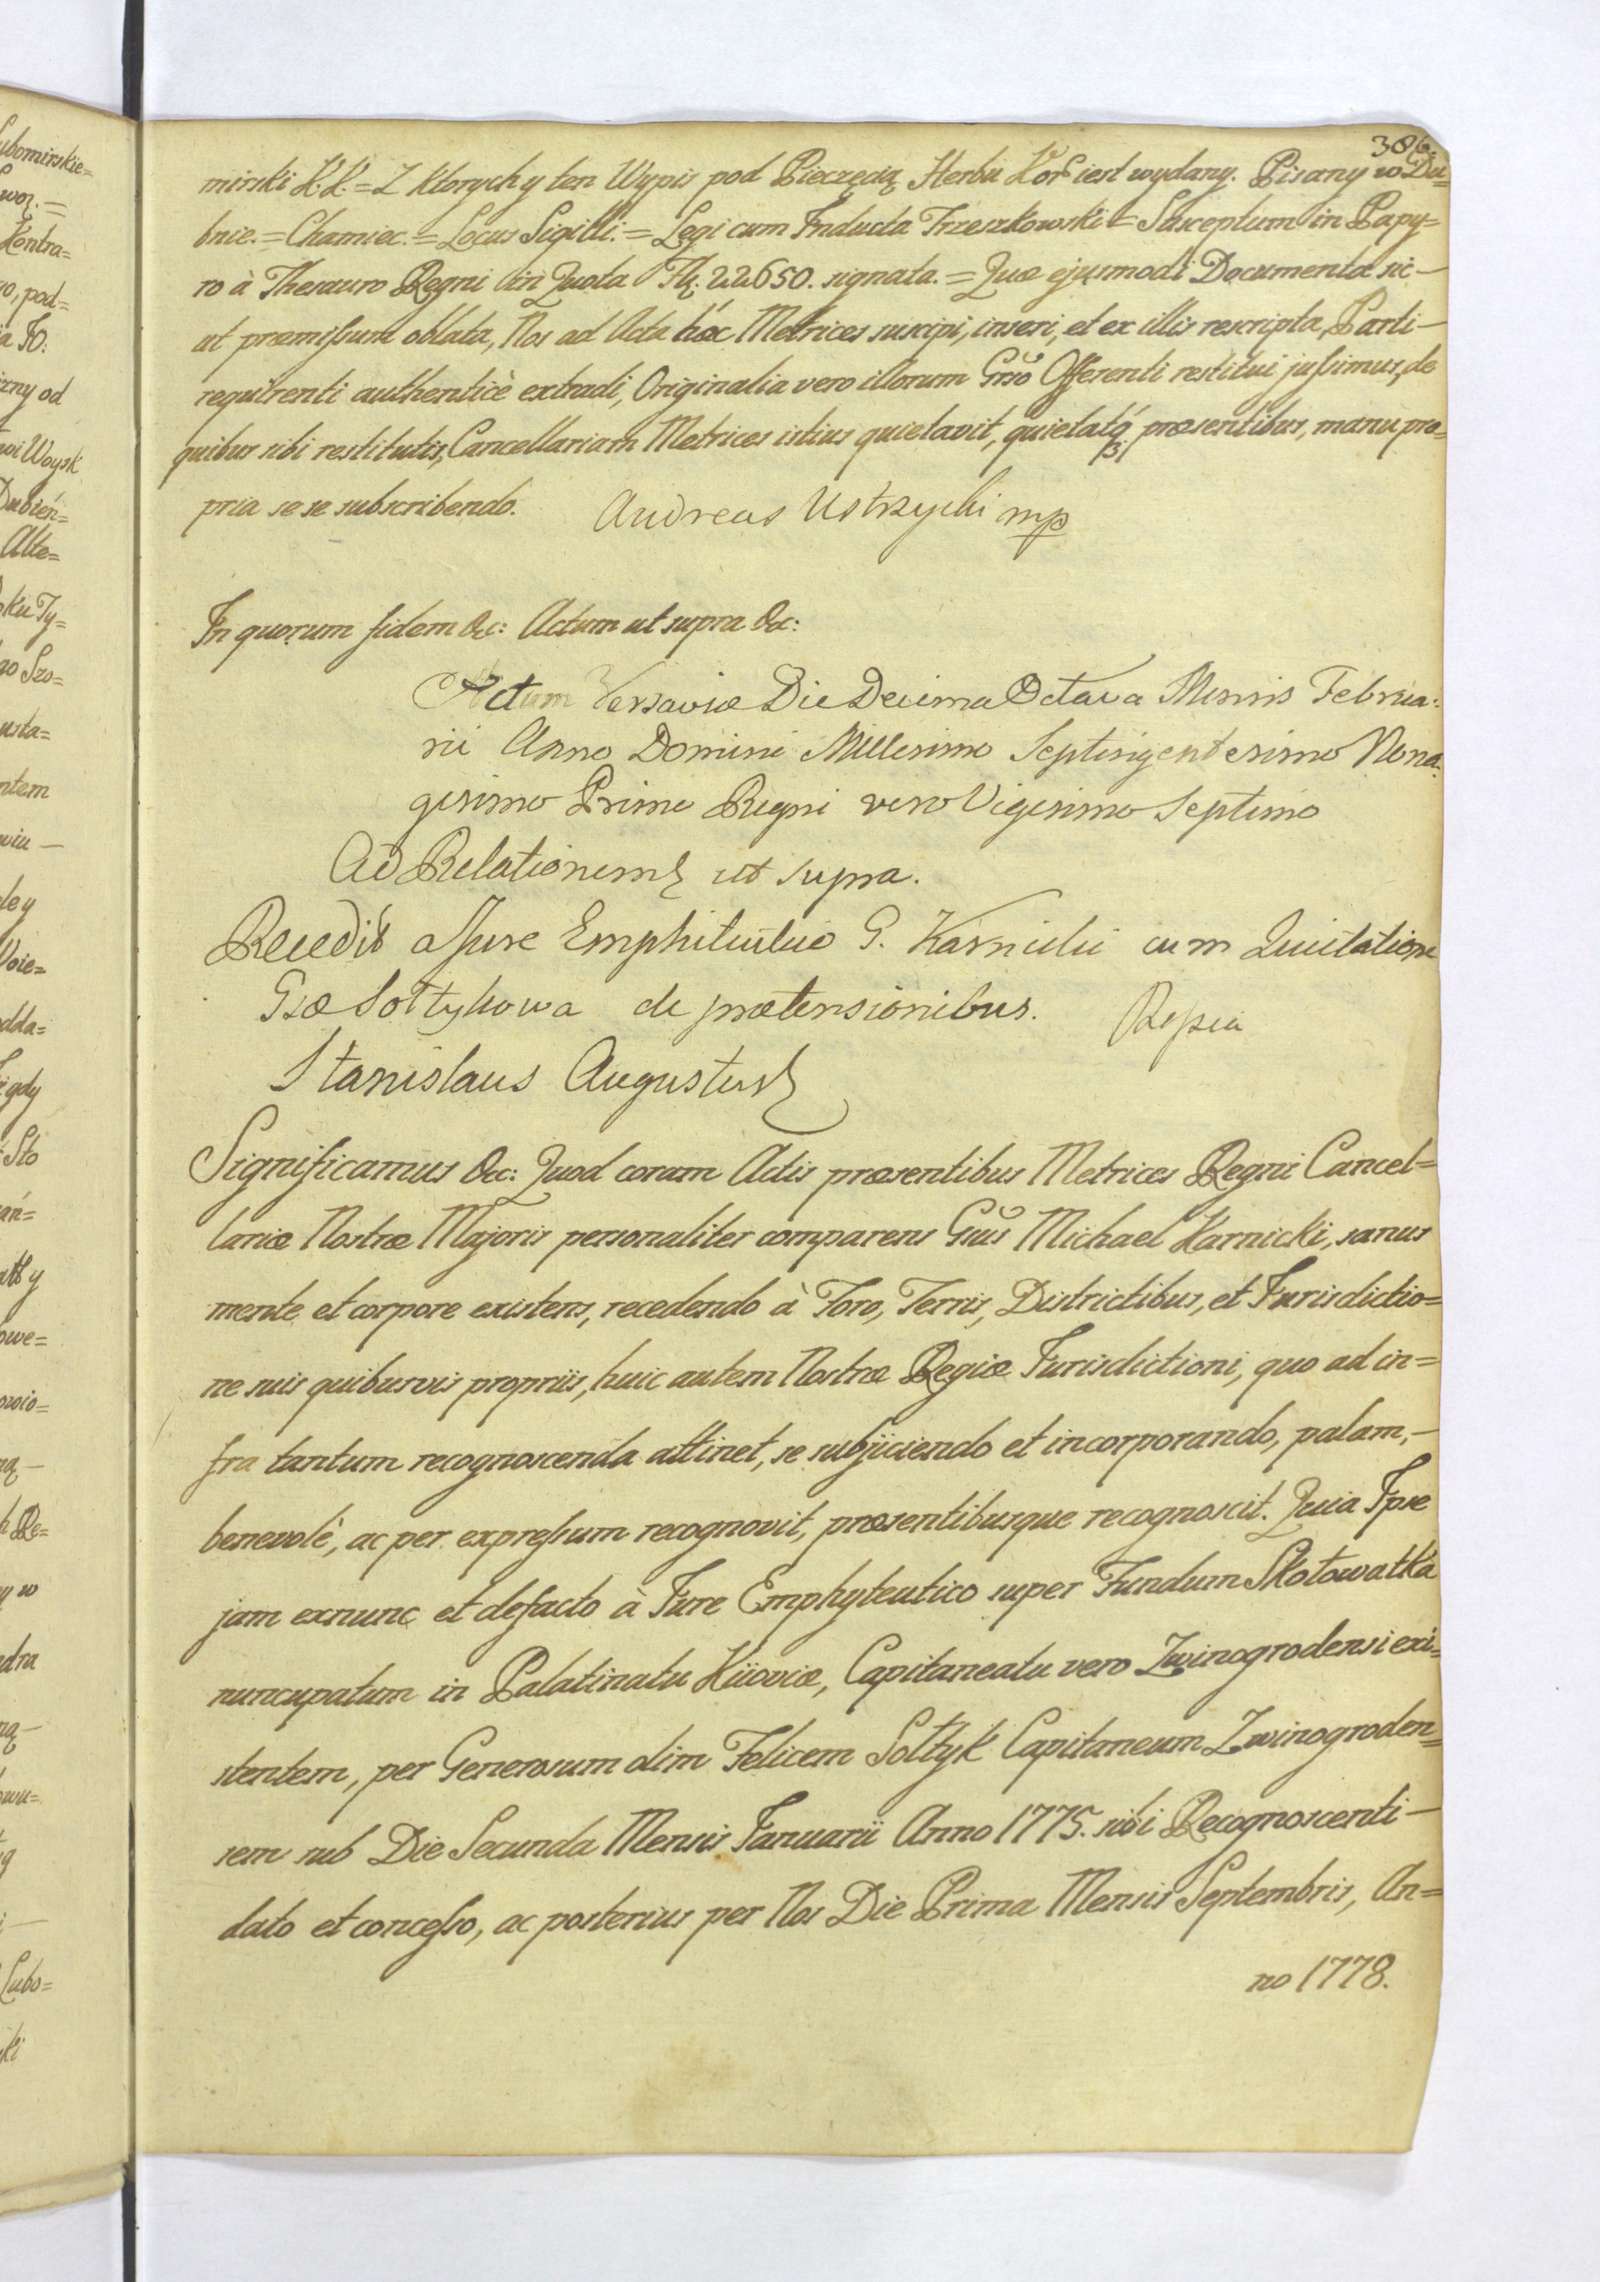 386.
mirski K: K: = Z ktorych y ten Wypis pod Pieczęcią Herbu Kor iest wydany. Pisany w Du=
bnie. = Chamiec. = Locus Sigilli. = Legi cum Inducta Trzeszkowski = Susceptum in Papy=
ro à Thesauro Regni in Quota Flł. 22650. signata. = Quæ ejusmodi Documenta sic-
ut præmissum oblata, Nos ad Acta hæc Metrices suscipi, inseri, et ex illis rescripta, Parti-
requirenti authenticè extradi, Originalia vero illorum Grso Offerenti restitui jussimus, de
quibus sibi restitutis, Cancellariam Metrices istius quietavit, quietatq præsentibus, manu pro=
pria se se subscribendo. Andreas Ustrzycki mp
In quorum fidem &c: Actum ut supra &c:
Actum Varsaviæ Die Decima Octava Mensis Februa:
rii Anno Domini Millesimo Septingentesimo Nona:
gesimo Primo Regni vero Vigesimo Septimo
Ad Relationem ut supra.
Recedit a Jure Emphiteutico G. Karnicki cum Quietatione
Gsæ Sołtykowa de prætensionibus.
Stanislaus Augustus
Significamus &c: Quod coram Actis præsentibus Metrices Regni Cancel=
lariæ Nostræ Majoris personaliter comparens Gsus Michael Karnicki, sanus
mente et corpore existens, recedendo à Foro, Terris, Districtibus, et Jurisdictio=
ne suis quibusvis propriis, huic autem Nostræ Regiæ Jurisdictioni, quo ad in=
fra tantum recognoscenda attinet, se subjiciendo et incorporando, palam,-
benevolè, ac per expressum recognovit, præsentibusque recognoscit. Quia Ipse
jam exnunc et defacto à Jure Emphyteutico super Fundum Skotowatka
nuncupatum in Palatinatu Kiioviæ, Capitaneatu vero Zwinogrodensi exi=
stentem, per Generosum olim Felicem Sołtyk Capitaneum Zwinogroden=
sem sub Die Secunda Mensis Januarii Anno 1775. sibi Recognoscenti-
dato et concesso, ac posterius per Nos Die Prima Mensis Septembris, An=
no 1778.